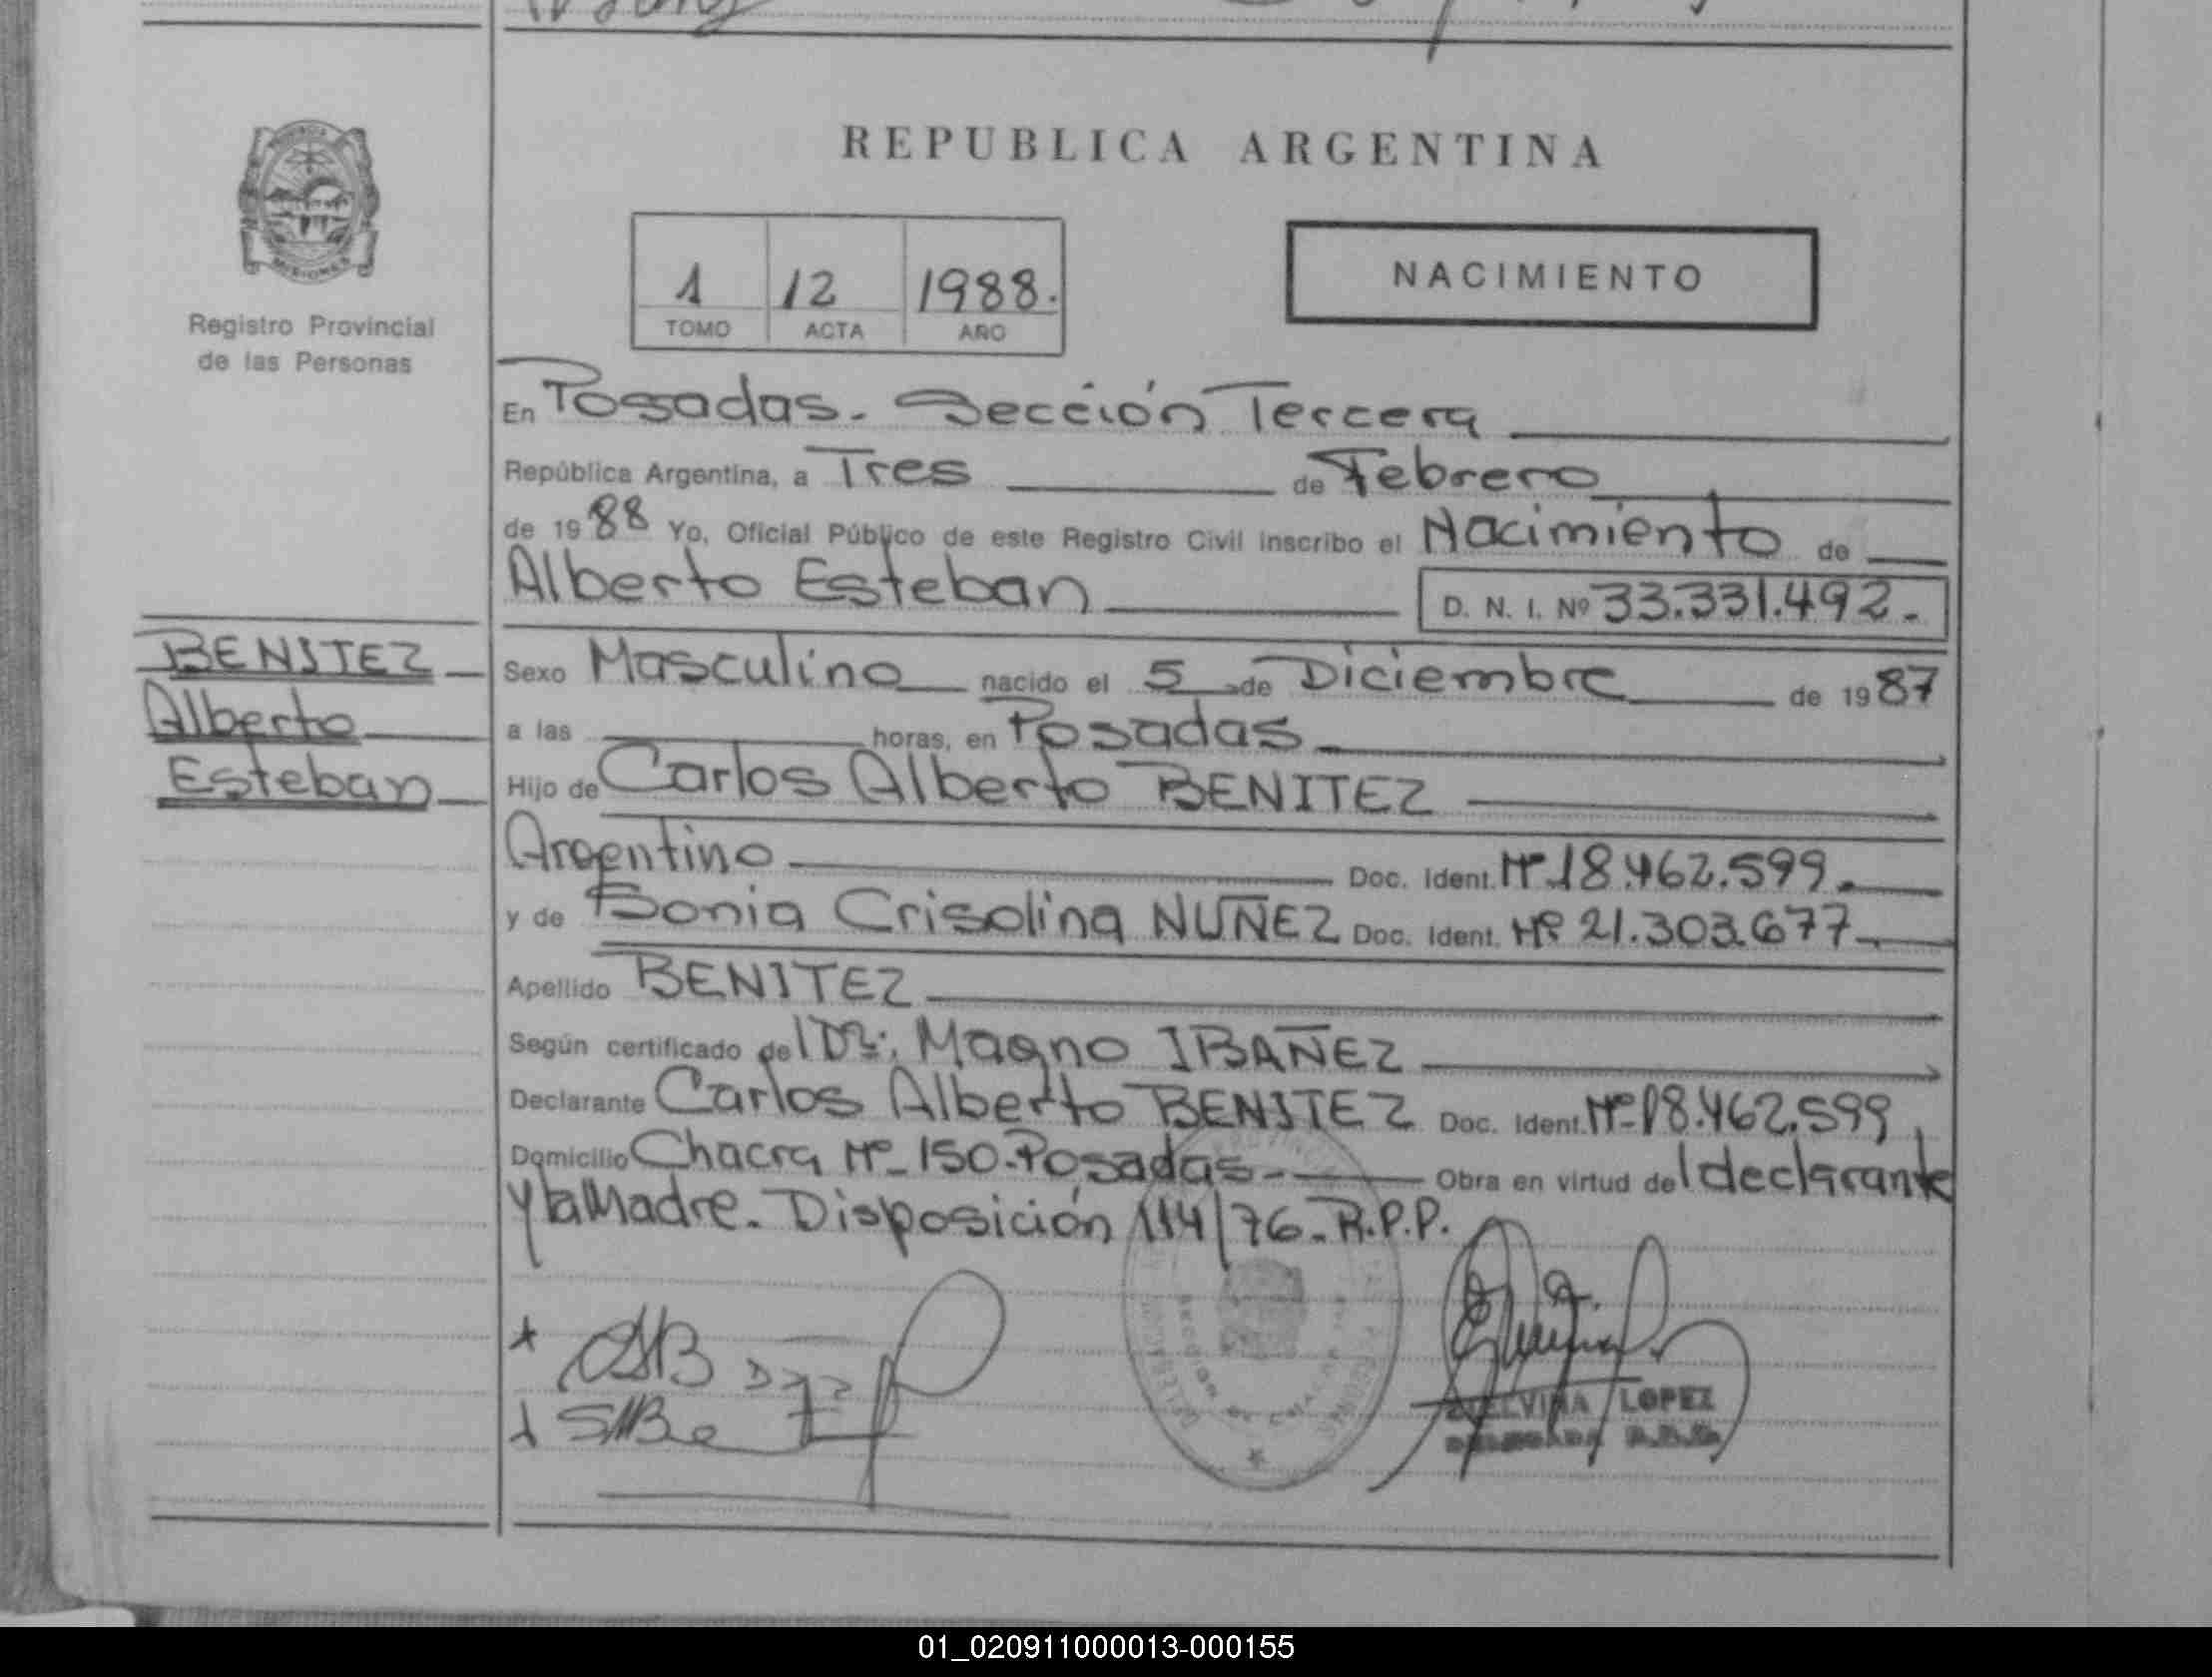 REPUBLICA ARGENTINA
MISIONES
Registro Provincial
de las Personas
1 12 1988.
TOMO ACTA AÑO
NACIMIENTO
En Posadas - Sección Tercera
República Argentina, a Tres de Febrero
de 1988 Yo, Oficial Público de este Registro Civil inscribo el Nacimiento de
Alberto Esteban D. N. I. Nº 33.331.492.-
BENITEZ
Alberto
Esteban
Sexo Masculino nacido el 5 de Diciembre de 1987
a las horas, en Posadas
Hijo de Carlos Alberto BENITEZ
Argentino Doc. Ident. Nº 18.462.599.
y de Sonia Crisolina NUÑEZ Doc. Ident. Nº 21.303.677
Apellido BENITEZ
Según certificado del Dr. Magno IBAÑEZ
Declarante Carlos Alberto BENITEZ Doc. Ident. Nº 18.462.599
Domicilio Chacra Nº 150 - Posadas - Obra en virtud del declarante
y la Madre. Disposición 114/76 - R.P.P.
LOPEZ
01_020911000013-000155